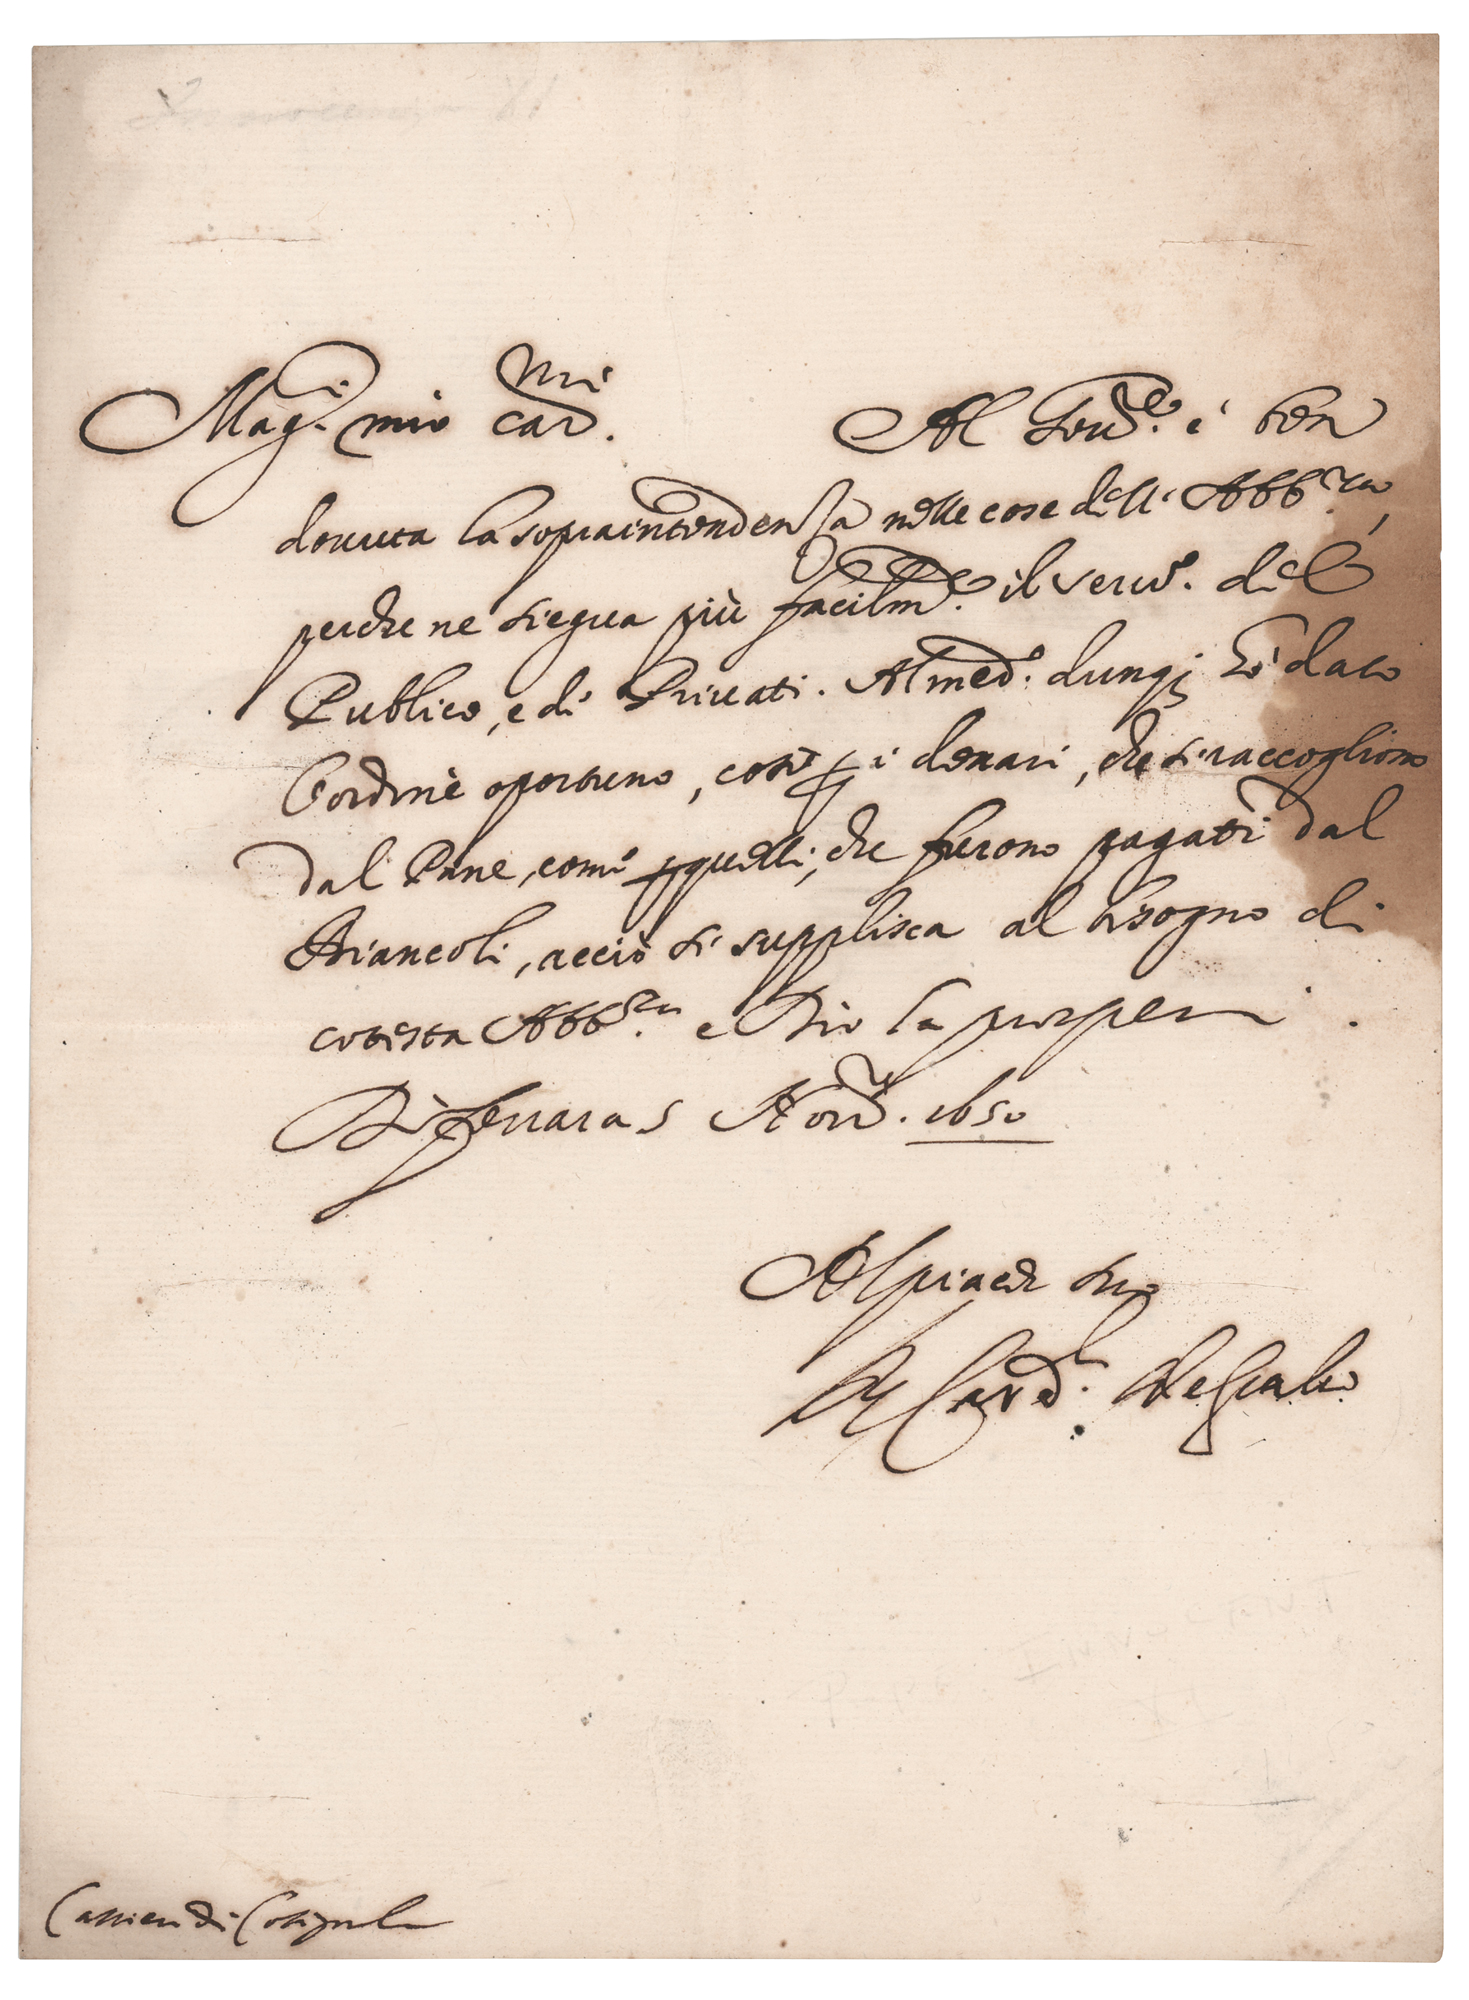 Mag.ci mio car.mi Al Gov.re è ben
douuta la sopraintendenza nelle cose dell' Abb.za,
perche ne siegua più facilm.te il seru.o del
Publico, e di Priuati. Al med.o dung; hò dato
l'ordine oportuno, così p i denari, che si raccogliono
dal Pane, come p quelli, che furono pagati dal
Biancoli, acciò si supplisca al bisogno di
cotesta Abb.za e Dio la prosperi.
Di Ferrara 5 Nov. 1650
Al piacer suo
Il Card.l
Innocenzo XI
Papa Innocent
XI